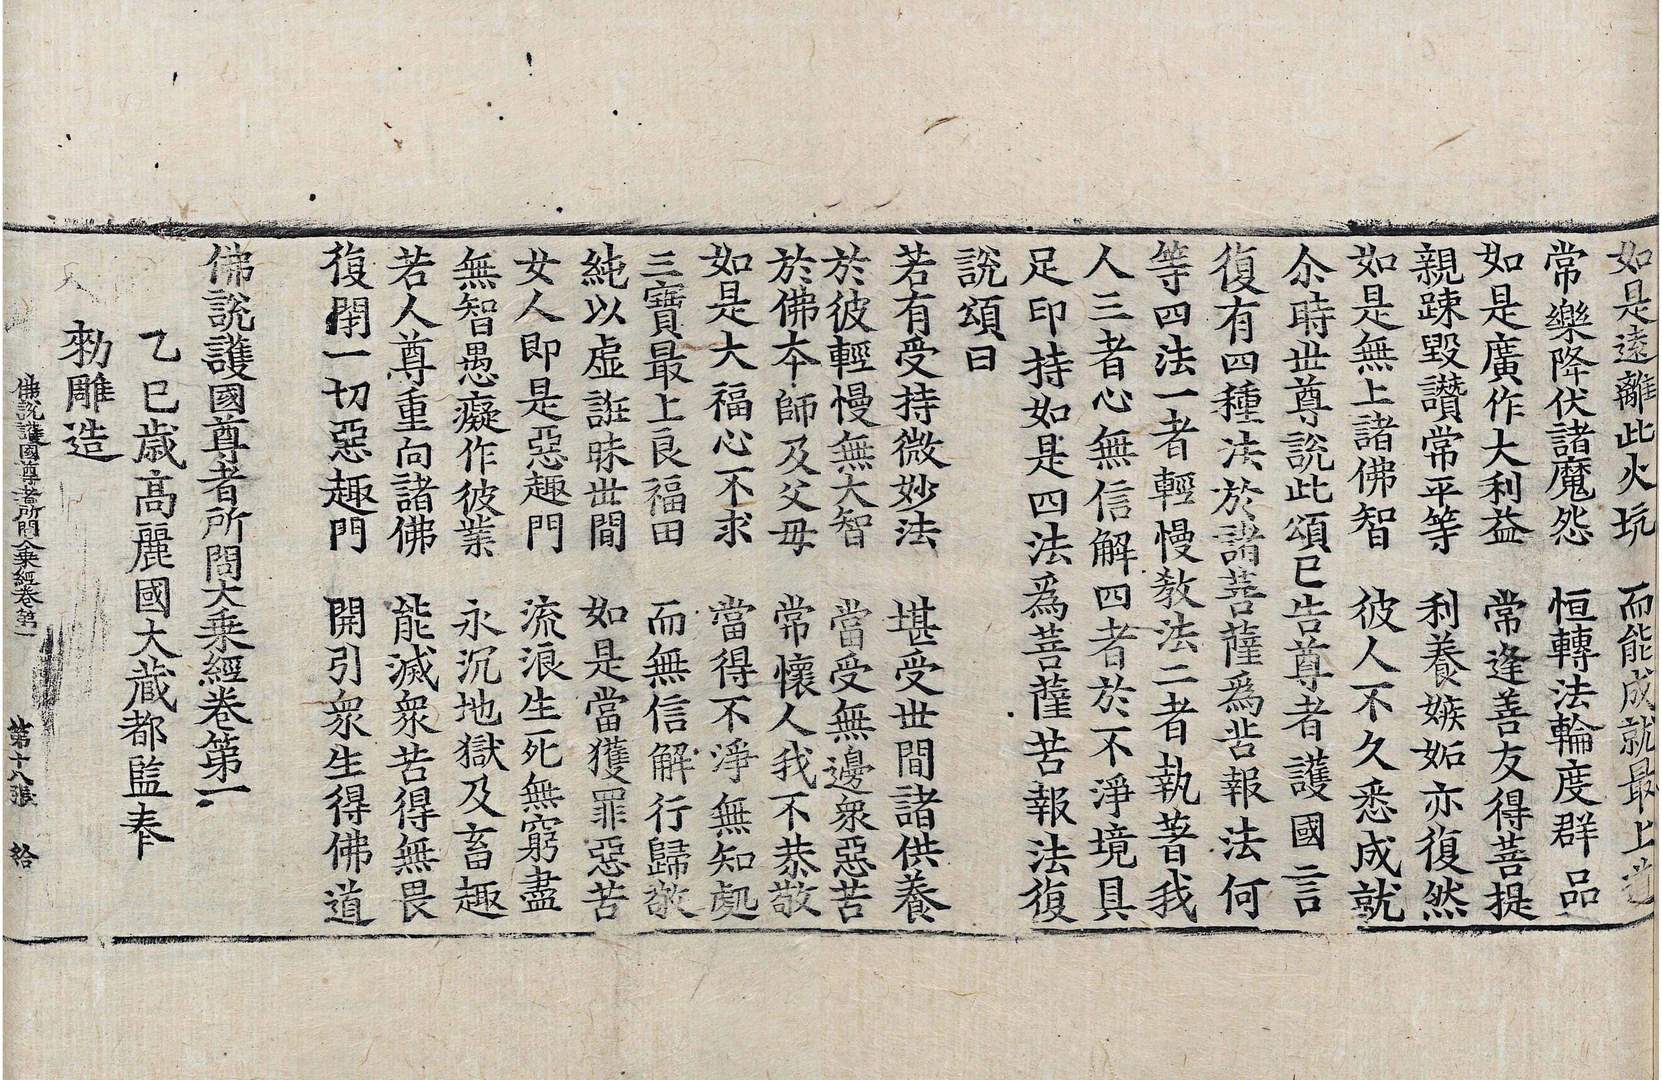 如是遠離此火坑　而能成就最上道
常樂降伏諸魔怨　恒轉法輪度群品
如是廣作大利益　常逢善友得菩提
親踈毀讚常平等　利養嫉妬亦復然
如是無上諸佛智　彼人不久悉成就
尒時世尊說此頌已告尊者護國言
復有四種法於諸菩薩爲苦報法何
等四法一者輕慢教法二者執著我
人三者心無信解四者於不淨境具
足印持如是四法爲菩薩苦報法復
說頌曰
若有受持微妙法　堪受世間諸供養
於彼輕慢無大智　當受無邊衆惡苦
於佛本師及父母　常懷人我不恭敬
如是大福心不求　當得不淨無知處
三寶最上良福田　而無信解行歸敬
純以虛誑昧世間　如是當獲罪惡苦
女人即是惡趣門　流浪生死無窮盡
無智愚癡作彼業　永沉地獄及畜趣
若人尊重向諸佛　能滅衆苦得無畏
復閇一切惡趣門　開引衆生得佛道
佛說護國尊者所問大乘經卷第一
乙巳歲高麗國大藏都監奉
勑雕造
佛說護國尊者所問大乘經卷第一　第十八張　給